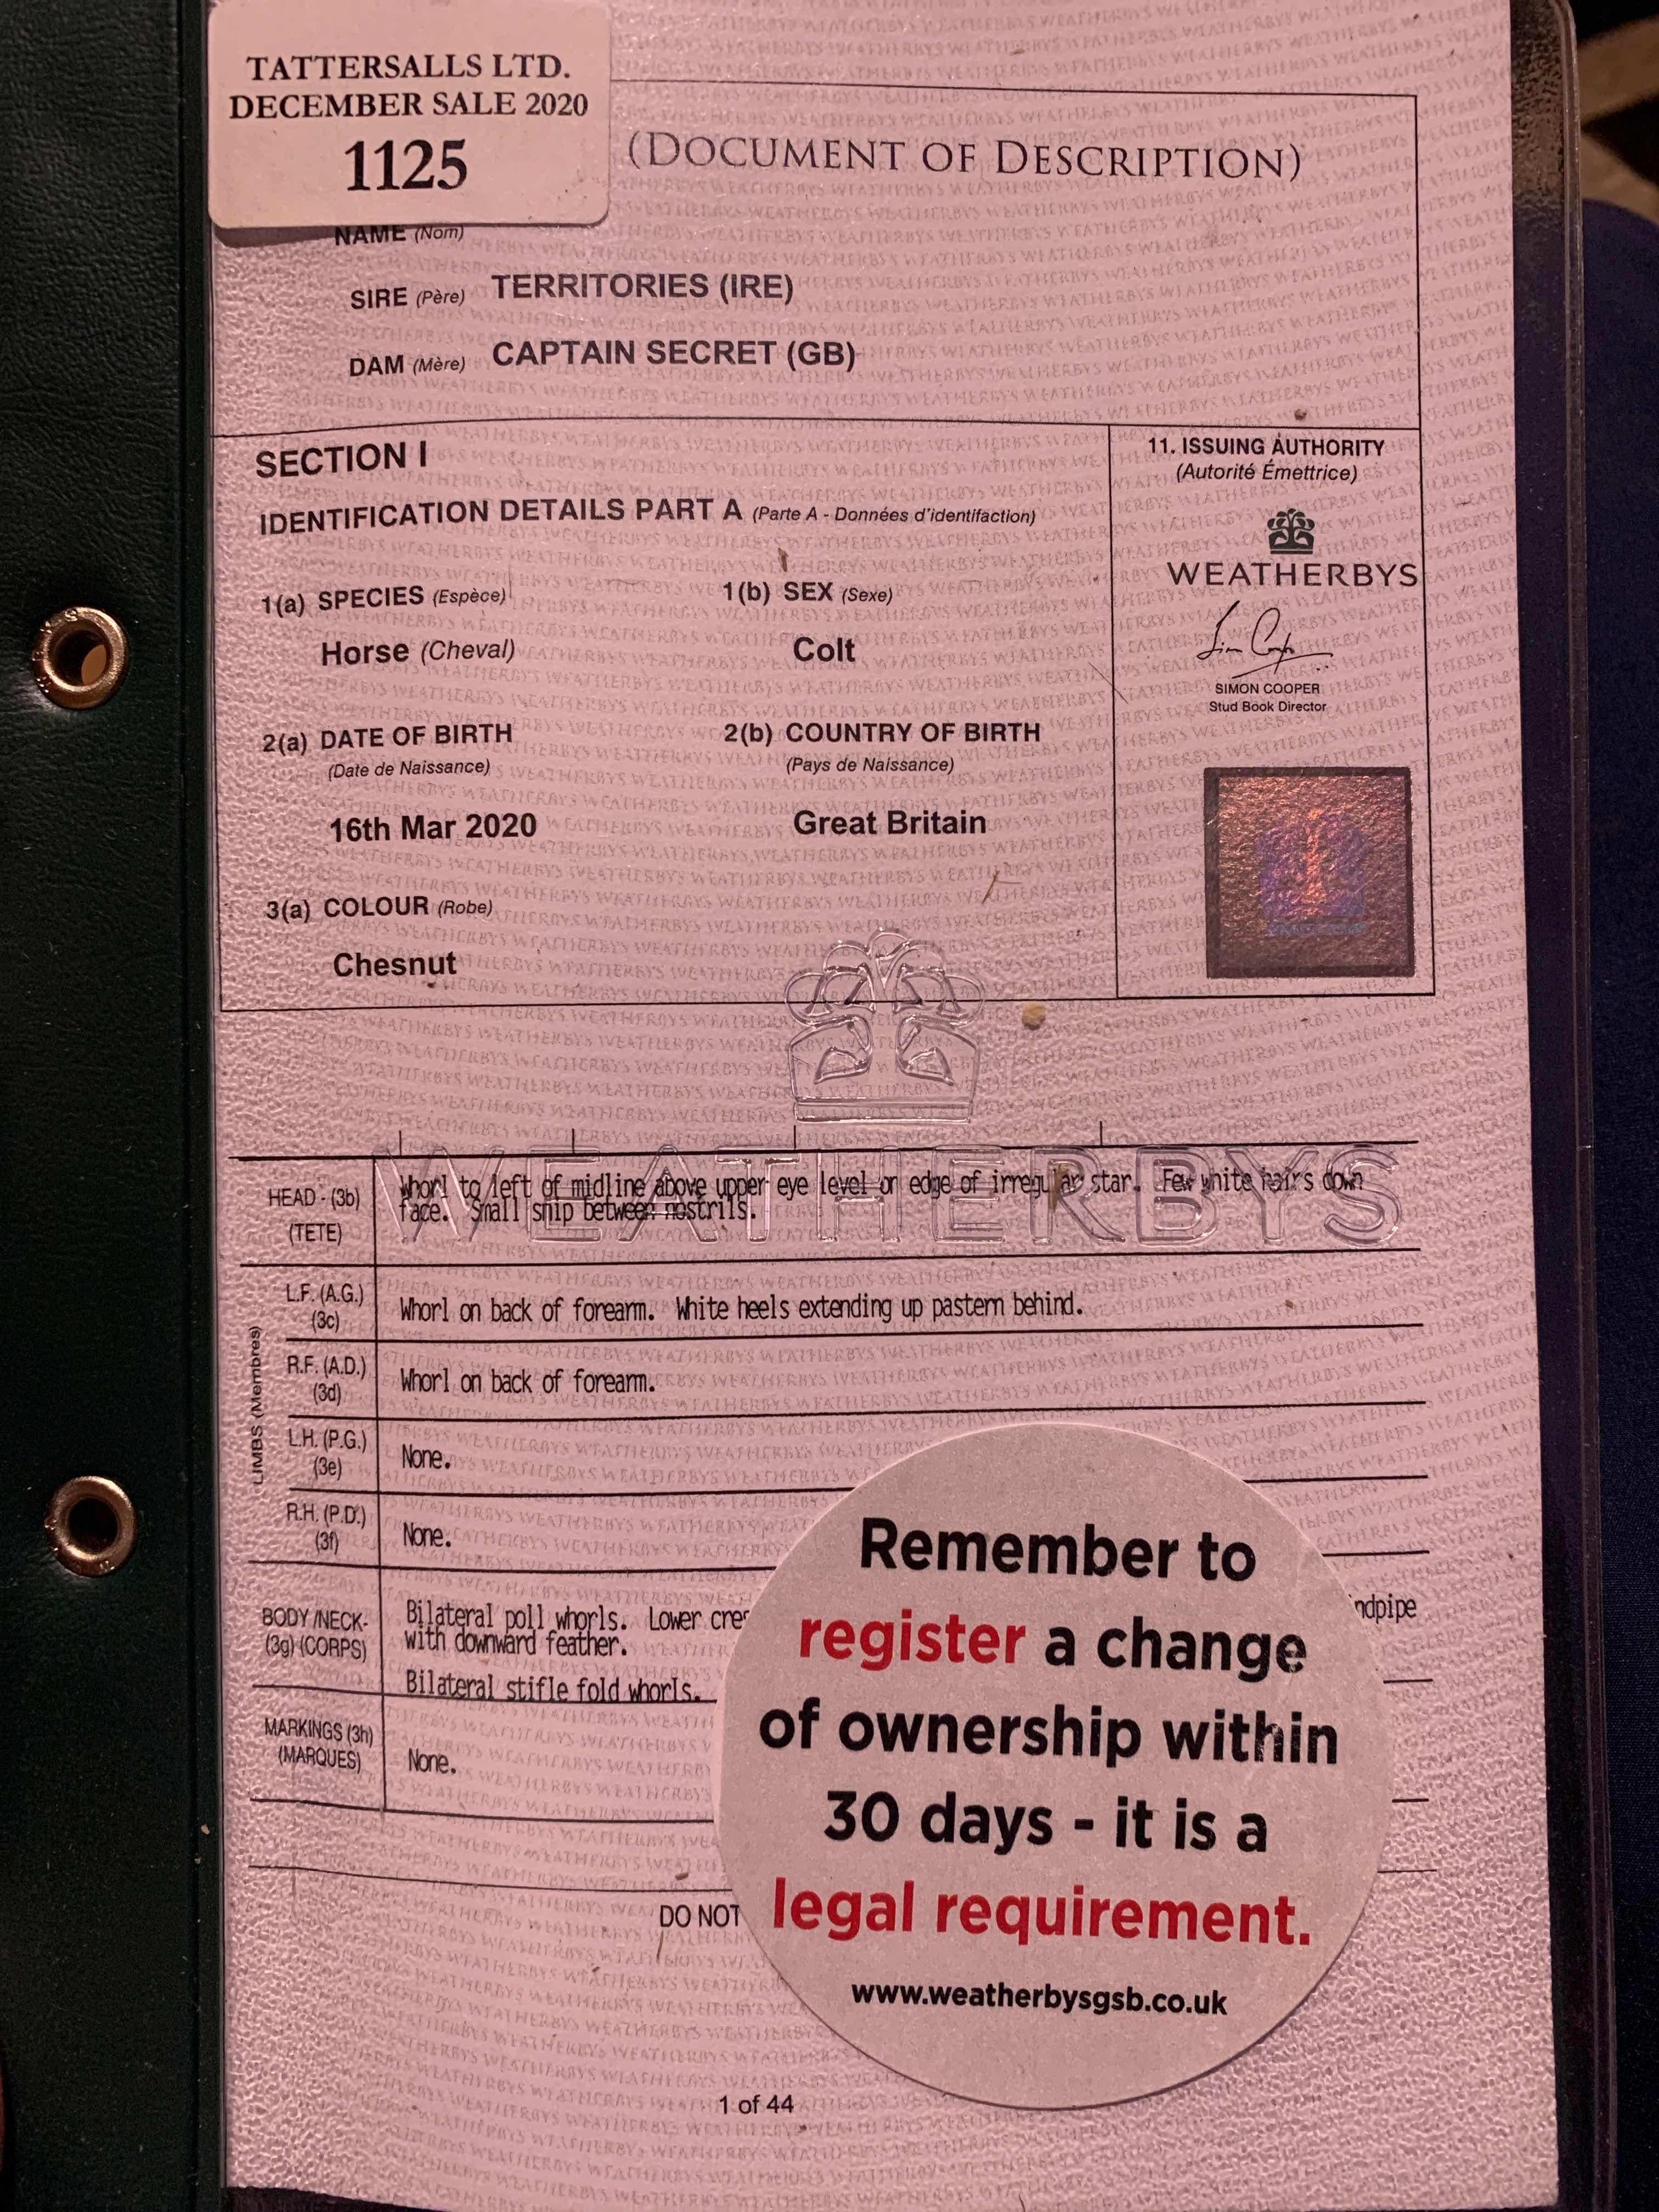 TATTERSALLS LTD.
DECEMBER SALE 2020
1125
(DOCUMENT OF DESCRIPTION)
NAME (Nom)
SIRE (Père) TERRITORIES (IRE)
DAM (Mère) CAPTAIN SECRET (GB)
SECTION I
IDENTIFICATION DETAILS PART A (Parte A - Données d'identifaction)
1(a) SPECIES (Espèce) 1(b) SEX (Sexe)
Horse (Cheval) Colt
2(a) DATE OF BIRTH 2(b) COUNTRY OF BIRTH
(Date de Naissance) (Pays de Naissance)
16th Mar 2020 Great Britain
3(a) COLOUR (Robe)
Chesnut
11. ISSUING AUTHORITY
(Autorité Émettrice)
WEATHERBYS
SIMON COOPER
Stud Book Director
WEATHERBYS
HEAD - (3b)
(TETE)
Whorl to left of midline above upper eye level on edge of irregular star. Few white hairs down
face. Small snip between nostrils.
LIMBS (Membres)
L.F. (A.G.)
(3c)
Whorl on back of forearm. White heels extending up pastern behind.
R.F. (A.D.)
(3d)
Whorl on back of forearm.
L.H. (P.G.)
(3e)
None.
R.H. (P.D.)
(3f)
None.
BODY /NECK-
(3g) (CORPS)
Bilateral poll whorls. Lower cres ndpipe
with downward feather.
Bilateral stifle fold whorls.
MARKINGS (3h)
(MARQUES)
None.
DO NOT
Remember to
register a change
of ownership within
30 days - it is a
legal requirement.
www.weatherbysgsb.co.uk
1 of 44